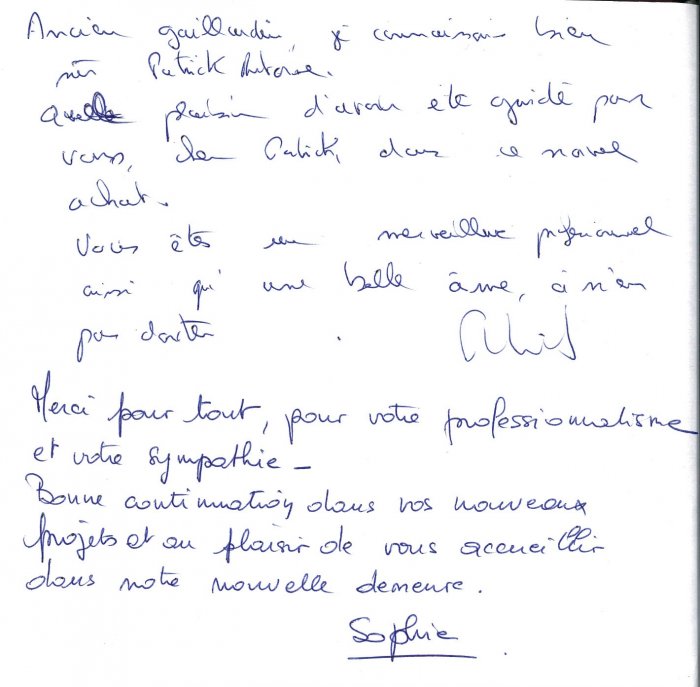 Ancien gaillardin, je connaissais bien
Patrick
plaisir d'avoir été guidé par
vous, cher Patrick, dans ce nouvel
achat.
Vous êtes un merveilleux professionnel
ainsi qu'une belle âme, à n'en
pas douter
Merci pour tout, pour votre professionnalisme
et votre sympathie -
Bonne continuation dans vos nouveaux
projets et au plaisir de vous accueillir
dans notre nouvelle demeure.
Sophie